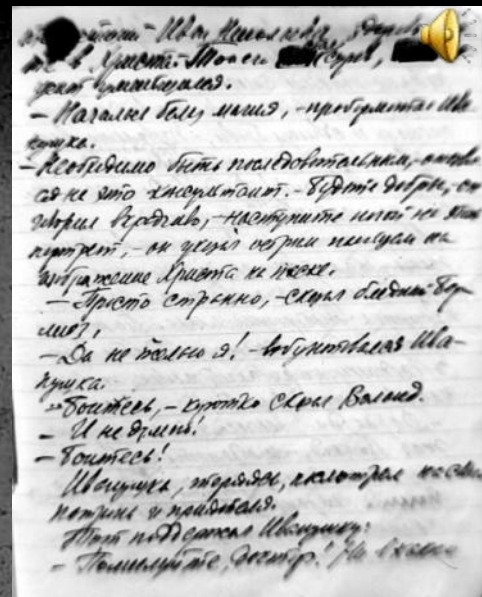 Иван Николаевич, 
те в Христа.
усмехнулся.
– Началась белая магия, – пробормотал Ива-
нушка.
– Необходимо быть последовательным, – отозвал-
ся на это консультант. – Будьте добры, – он
говорил вкрадчиво, – наступите ногой на этот
портрет, – он указал острым пальцем на
изображение Христа на песке.
– Просто странно, – сказал бледный Бер-
лиоз.
– Да не желаю я! – взбунтовался Ива-
нушка.
– Боитесь, – коротко сказал Воланд.
– И не думаю!
– Боитесь!
Иванушка, теряясь, посмотрел на свои
и приятеля.
Тот поддержал Иванушку:
– Помилуйте, доктор! Ни в каком